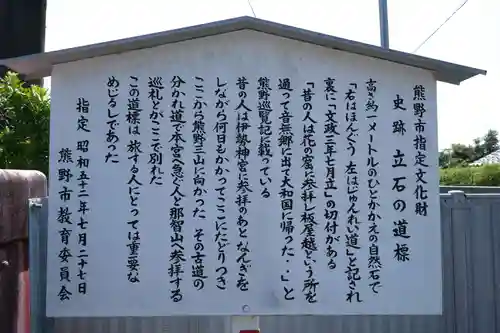 熊野市指定文化財
史跡 立石の道標
高さ約一メートルのひとかかえの自然石で
「右はほんどう 左はじゅんれい道」と記され
裏に「文政三年七月立」の切付がある
「昔の人は花の窟に参拝し板屋越という所を
通って音無郷に出て大和国に帰った‥」と
熊野巡覧記に載っている
昔の人は伊勢神宮に参拝のあと なんぎを
しながら何日もかかってここにたどりつき
ここから熊野三山に向かった その古道の
分かれ道で本宮へ急ぐ人と那智山へ参拝する
巡礼とがここで別れた
この道標は 旅する人にとっては重要な
めじるしであった
指定 昭和五十二年七月二十七日
熊野市教育委員会